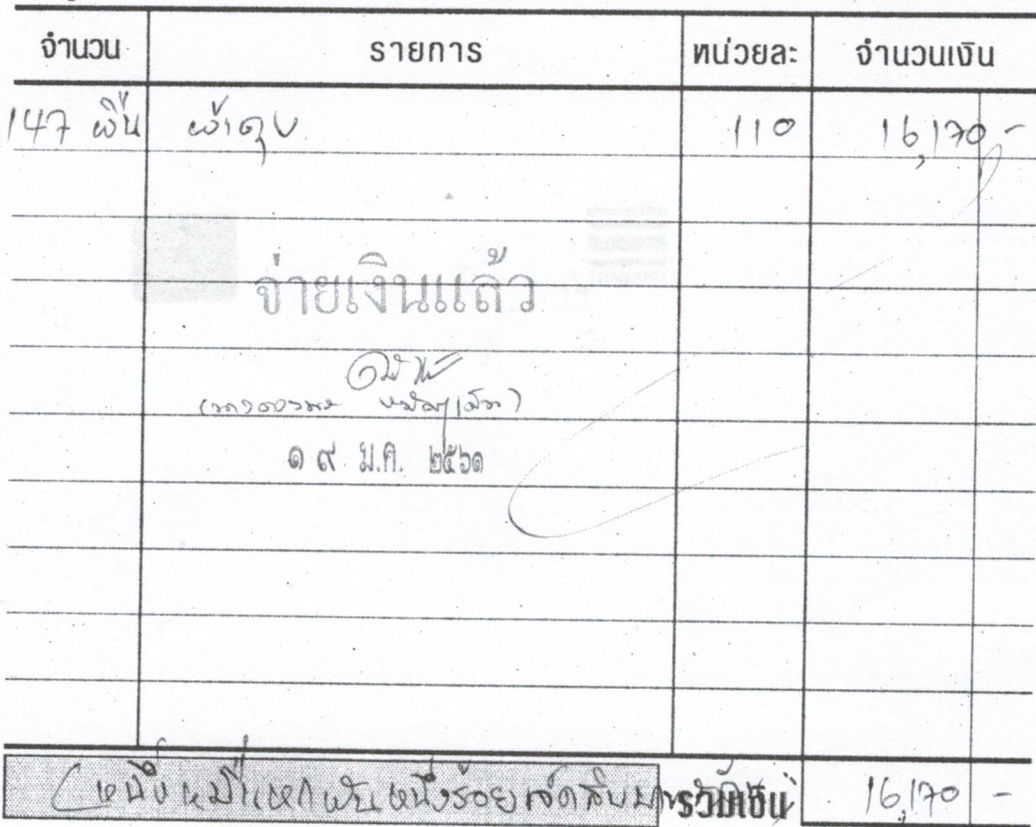 จำนวน รายการ หน่วยละ จำนวนเงิน
147 ผืน ผ้าดุบ 110 16,170 -
จ่ายเงินแล้ว
๑๙ ม.ค. ๒๕๖๑
(หนึ่งหมื่นหกพันหนึ่งร้อยเจ็ดสิบบาท รวมเงิน 16,170 -